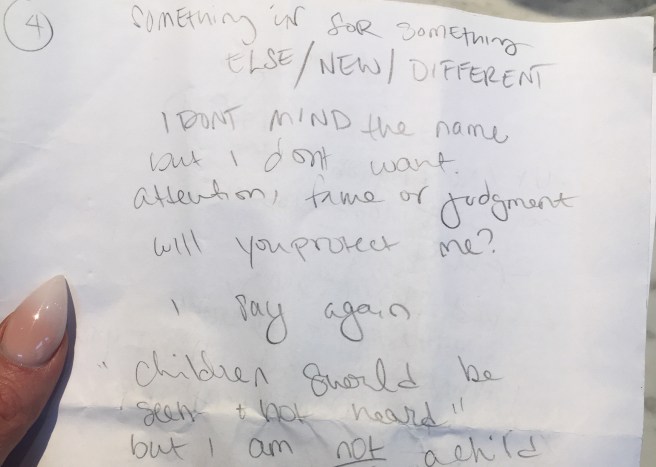 4
SOMEthing in FOR SOMEthing
ELSE/NEW/DIFFERENT
I DONT MIND the name
but I dont want
attention, fame or judgment
will you protect me?
I say again
"children should be
seen + not heard"
but I am not a child